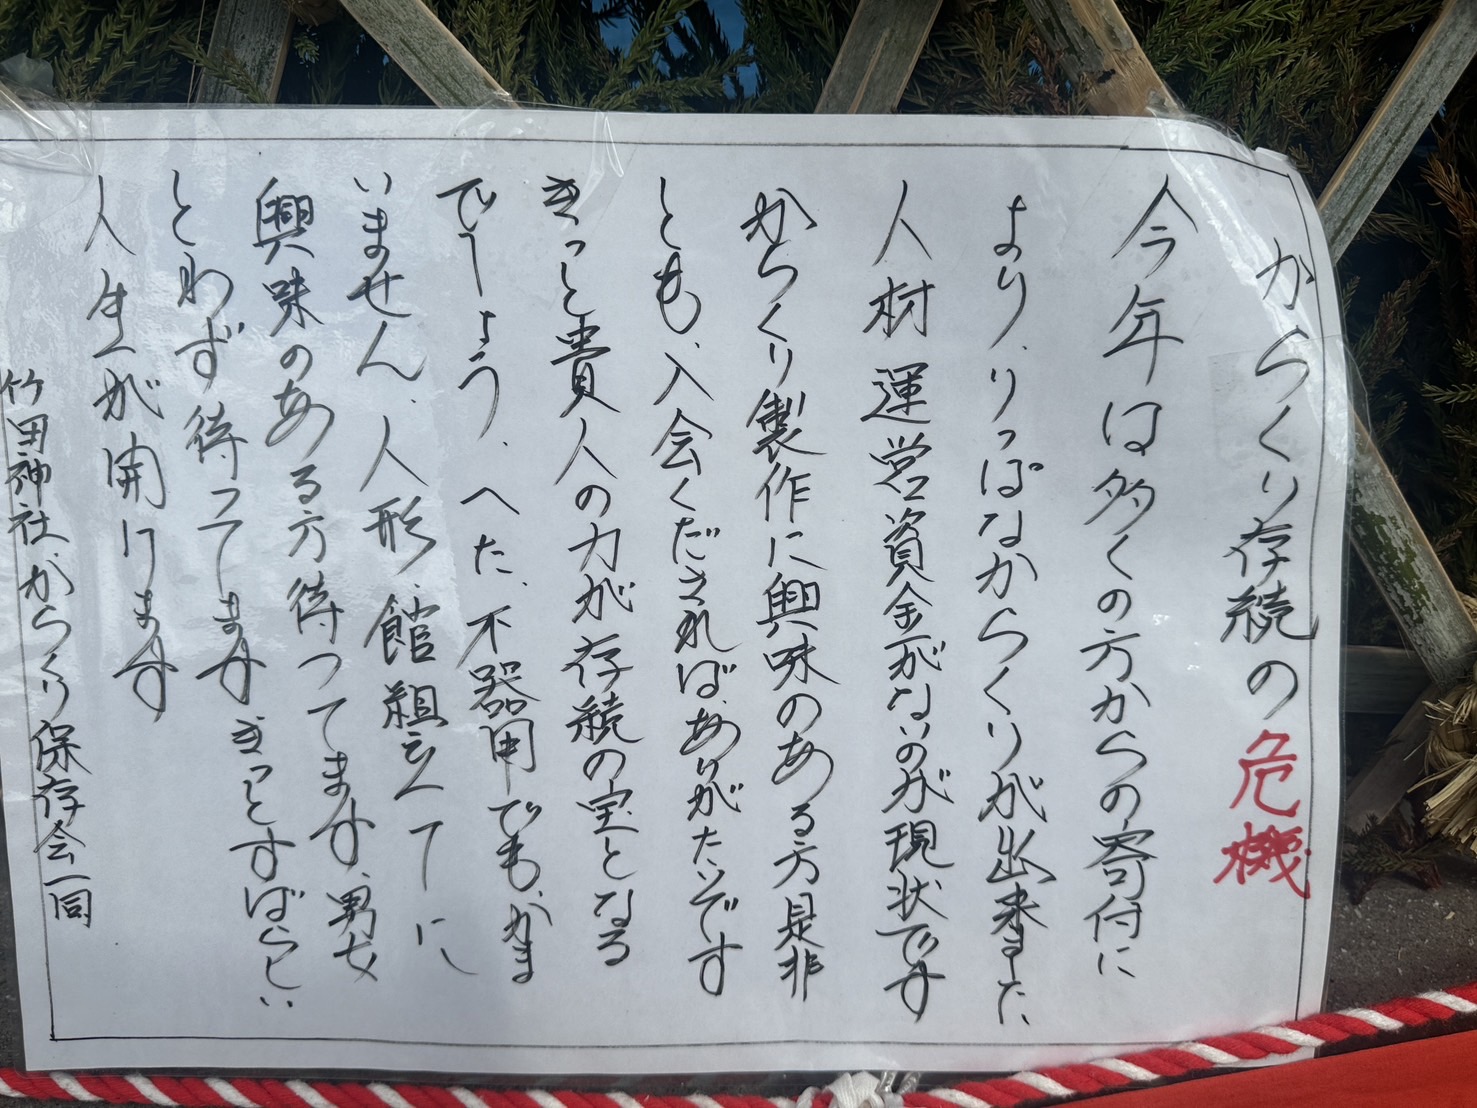 からくり存続の危機
今年は多くの方からの寄付に
より、りっぱなからくりが出来ました
人材運営資金がないのが現状です
からくり製作に興味のある方是非
とも、入会くだされば、ありがたいです
きっと貴人の力が存続の宝となる
でしょう、へた、不器用でも、かま
いません、人形、館組立て
興味のある方待ってます、男女
とわず待ってます きっとすばらしい
人生が開けます
竹田神社、からくり保存会一同